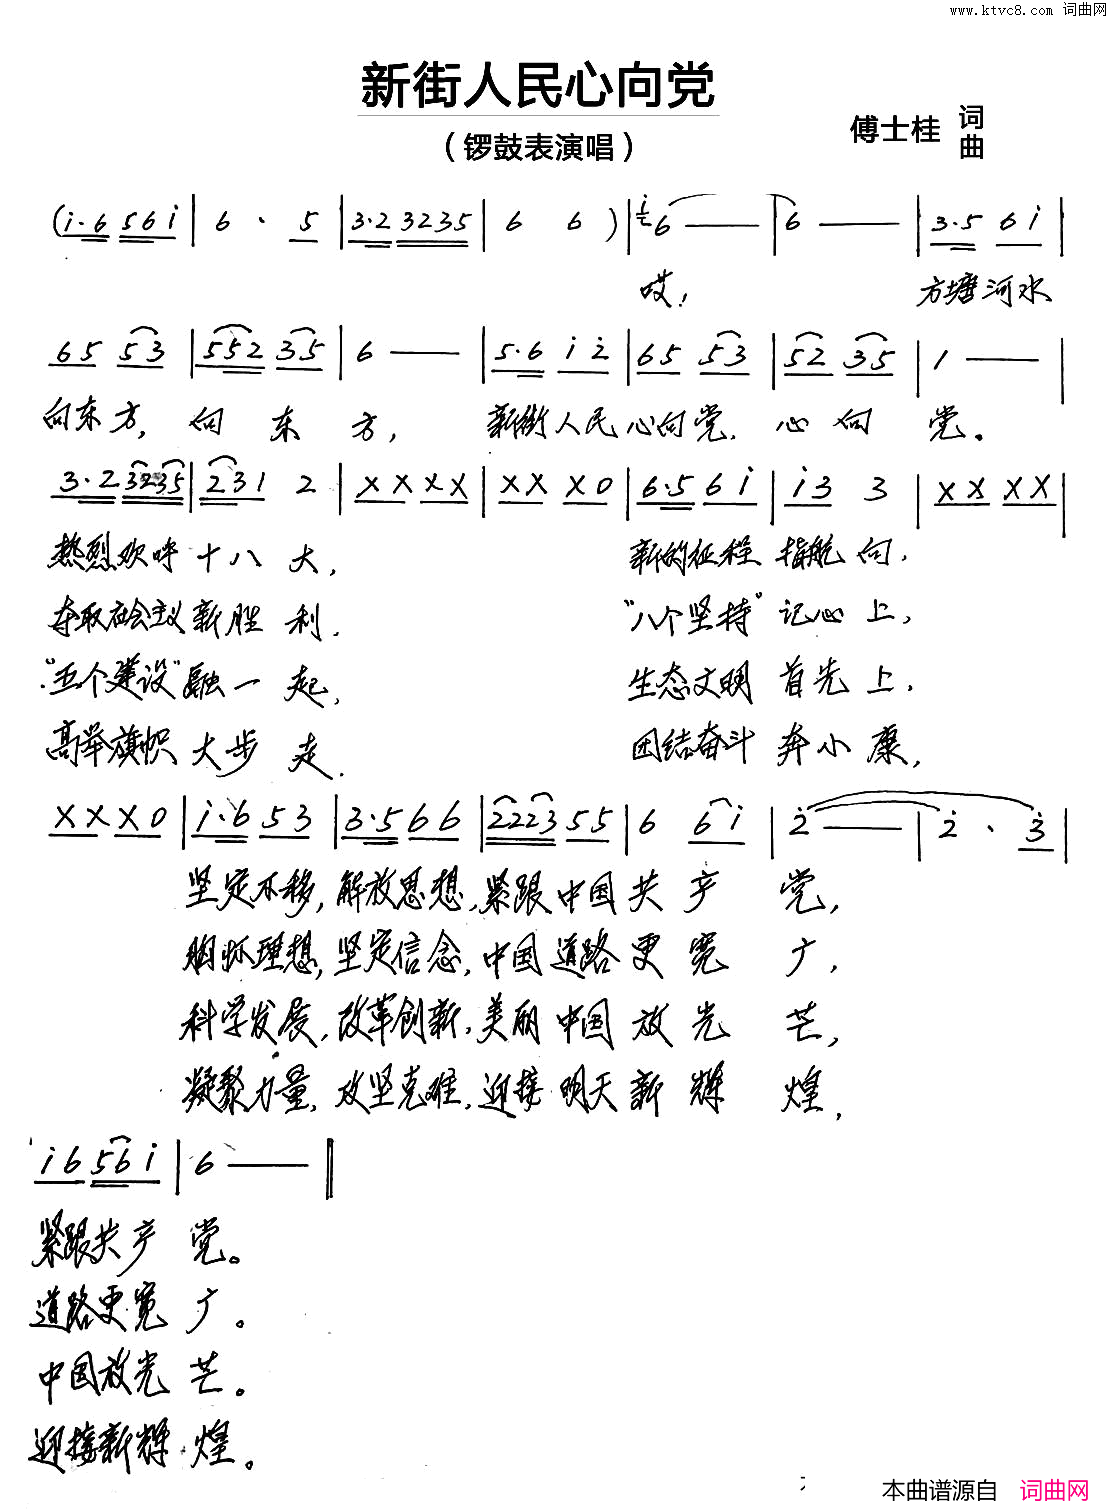 www.ktvc8.com 词曲网
新街人民心向党
（锣鼓表演唱）
傅士桂 词
曲
(i·6 5 6 i | 6 · 5 | 3·2 3235 | 6 6 ) | i 6 — | 6 — | 3·5 6 i |
哎！ 方塘河水
6 5 5 3 | 5 5 2 3 5 | 6 — | 5·6 i 2 | 6 5 5 3 | 5 2 3 5 | 1 — |
向东方，向 东 方， 新街人民心向党．心 向 党。
3·2 3235 | 2 3 1 2 | X X X X | X X X 0 | 6·5 6 i | i 3 3 | X X X X |
热烈欢呼十八大， 新的征程 指航向．
夺取社会主义新胜利． “八个坚持”记心上，
“五个建设”融一起， 生态文明 首先上．
高举旗帜大步走． 团结奋斗 奔小康，
X X X 0 | i·6 5 3 | 3·5 6 6 | 2223 5 5 | 6 6 i | 2 — | 2 · 3 |
坚定不移，解放思想，紧跟中国共产党，
胸怀理想，坚定信念，中国道路更宽广，
科学发展，改革创新，美丽中国放光芒，
凝聚力量，攻坚克难，迎接明天新辉煌，
i 6 5 6 i | 6 — ‖
紧跟共产党。
道路更宽广。
中国放光芒。
迎接新辉煌。
本曲谱源自 词曲网